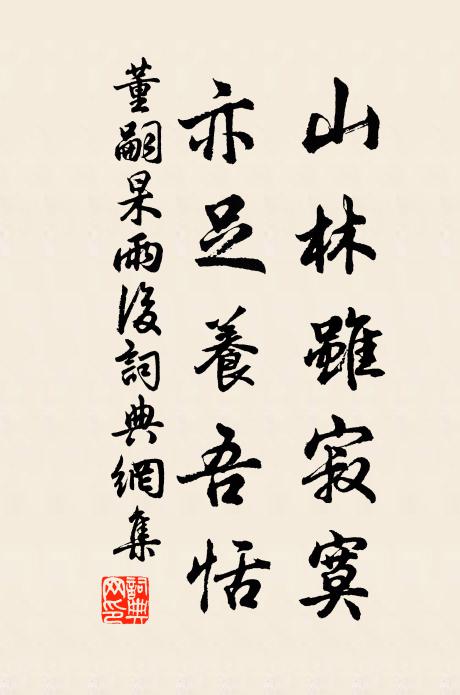 山林雖寂寞
亦足養吾恬
董嗣杲雨後詞典網集
詞典網印